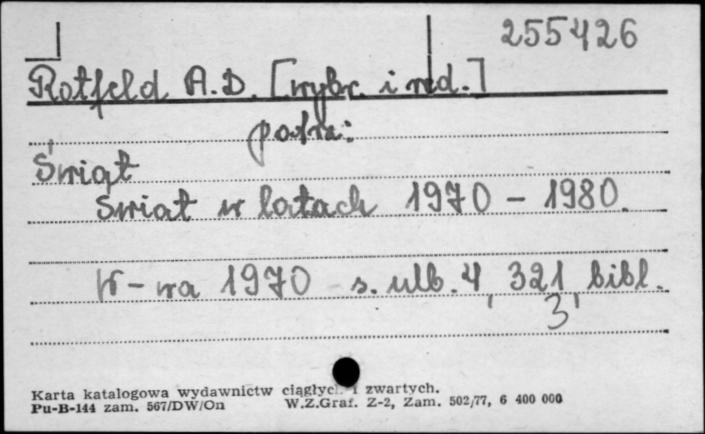 255426
Rotfeld A.D. [wybr. i red.]
patrz:
Świat
Świat w latach 1970 - 1980.
W-wa 1970 s. nlb. 4, 321, bibl.
3
Karta katalogowa wydawnictw ciągłych i zwartych.
Pu-B-144 zam. 567/DW/On W.Z.Graf. Z-2, Zam. 502/77, 6 400 000